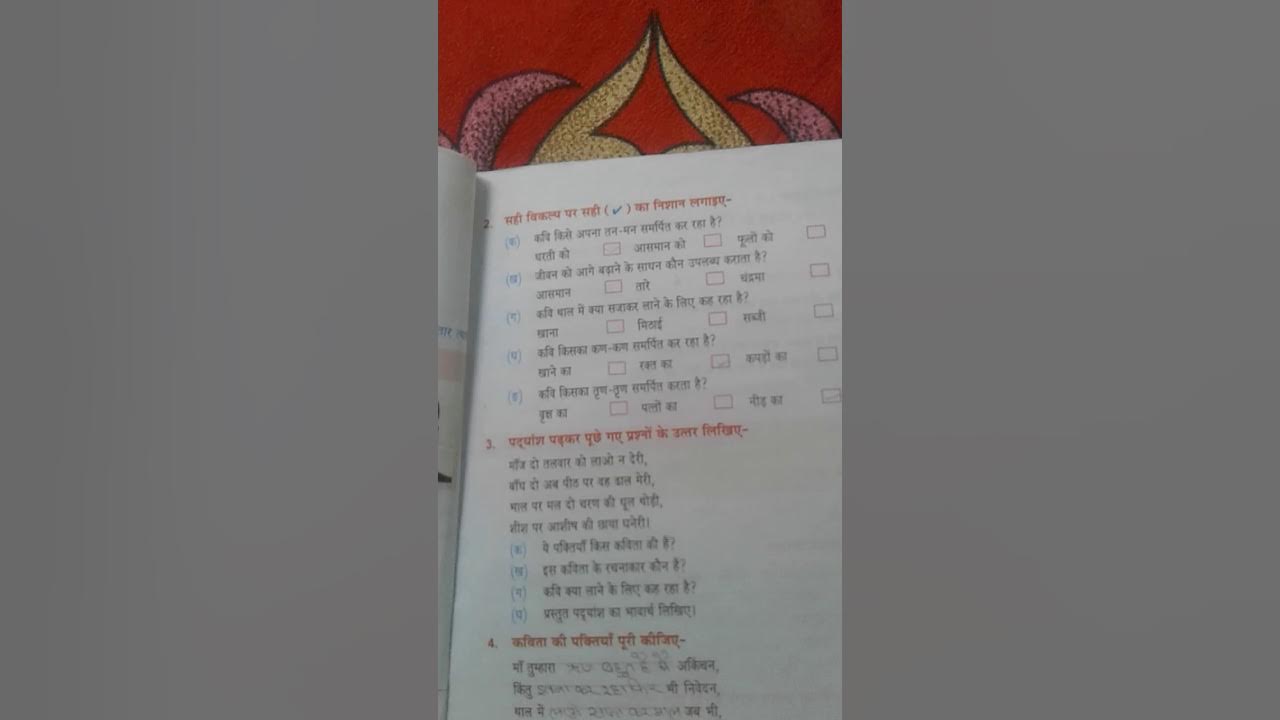 2. सही विकल्प पर सही (✓) का निशान लगाइए-
(क) कवि किसे अपना तन-मन समर्पित कर रहा है?
धरती को आसमान को फूलों को
(ख) जीवन को आगे बढ़ाने के साधन कौन उपलब्ध कराता है?
आसमान तारे चंद्रमा
(ग) कवि थाल में क्या सजाकर लाने के लिए कह रहा है?
खाना मिठाई सब्जी
(घ) कवि किसका कण-कण समर्पित कर रहा है?
खाने का रक्त का कपड़ों का
(ङ) कवि किसका तृण-तृण समर्पित करता है?
वृक्ष का पत्तों का नीड़ का
3. पद्यांश पढ़कर पूछे गए प्रश्नों के उत्तर लिखिए-
माँज दो तलवार को लाओ न देरी,
बाँध दो अब पीठ पर वह ढाल मेरी,
भाल पर मल दो चरण की धूल थोड़ी,
शीश पर आशीष की छाया घनेरी।
(क) ये पंक्तियाँ किस कविता की हैं?
(ख) इस कविता के रचनाकार कौन हैं?
(ग) कवि क्या लाने के लिए कह रहा है?
(घ) प्रस्तुत पद्यांश का भावार्थ लिखिए।
4. कविता की पंक्तियाँ पूरी कीजिए-
माँ तुम्हारा ऋण बहुत है मैं अकिंचन,
किंतु इतना कर रहा फिर भी निवेदन,
थाल में लाऊँ सजाकर भाल जब भी,